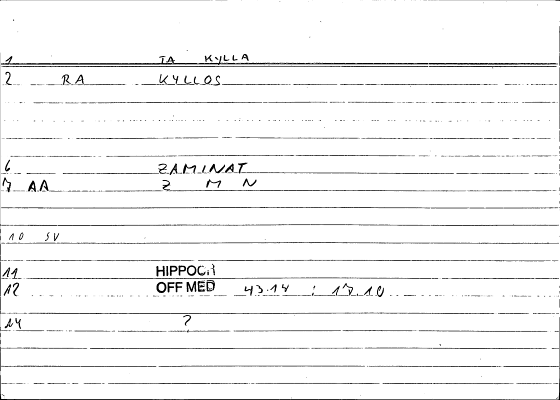 1 TA KYLLA
2 RA KYLLOS
6 ZAMINAT
7 AA Z M N
10 SV
11 HIPPOCR
12 OFF MED 43.14 : 17.10
14 ?